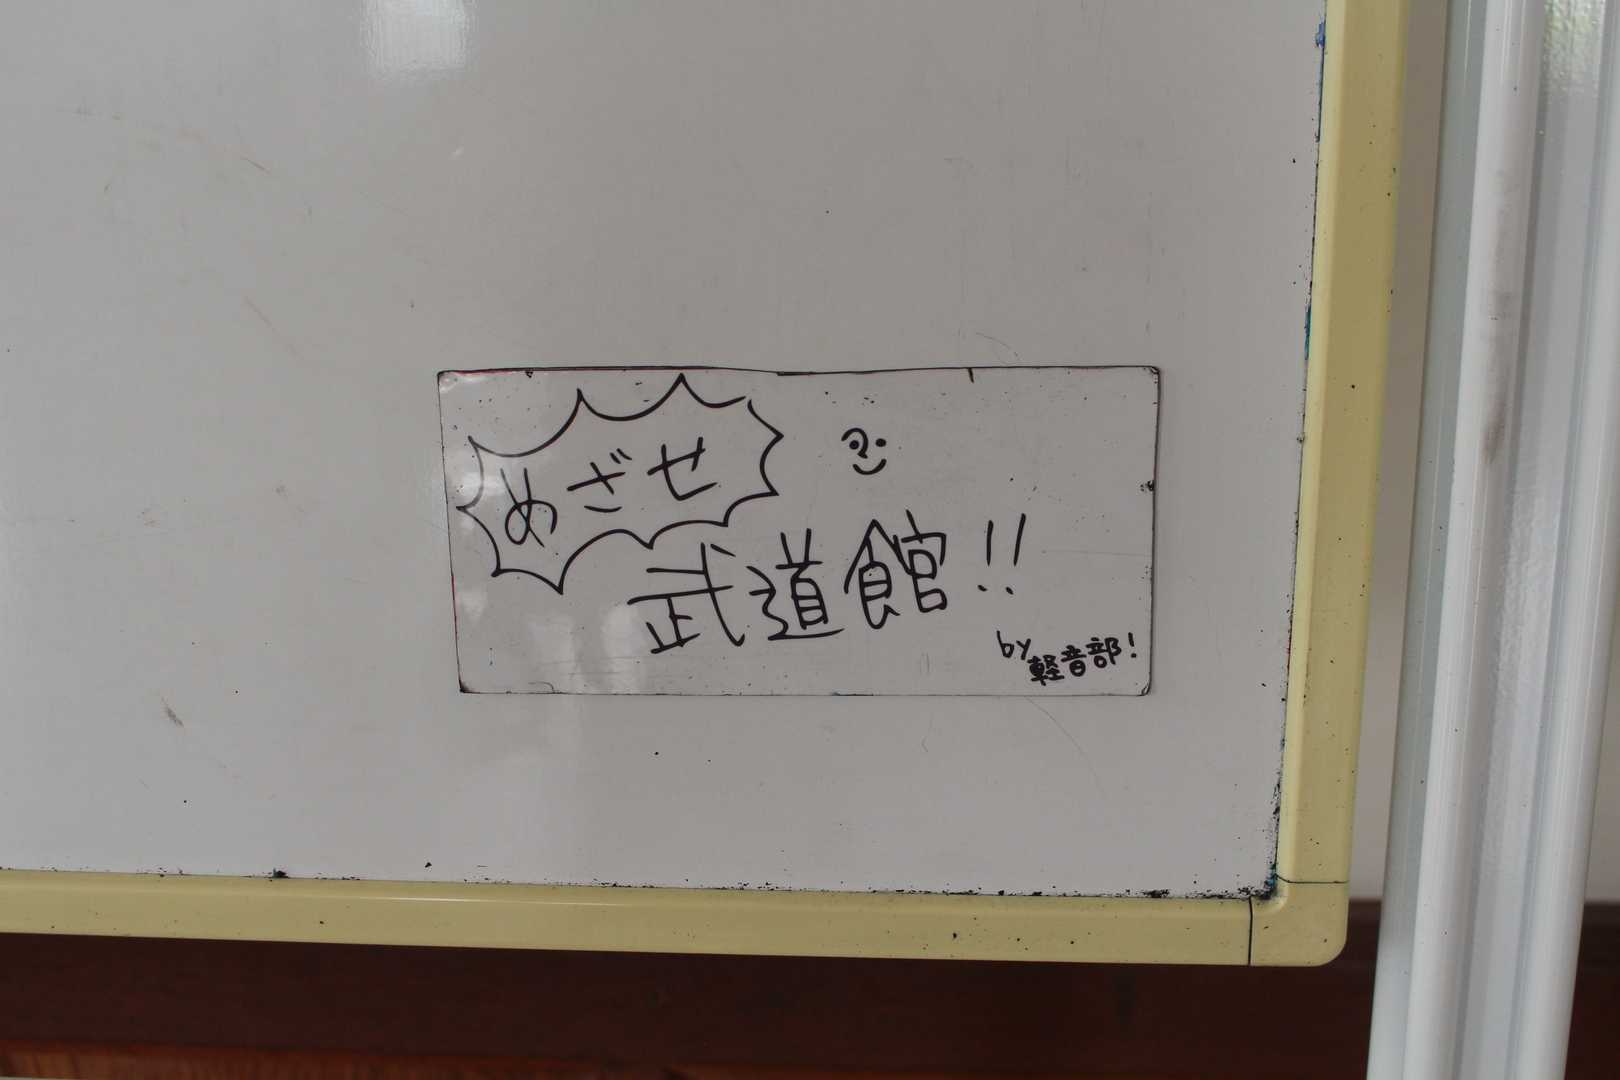 めざせ
武道館!!
by軽音部!